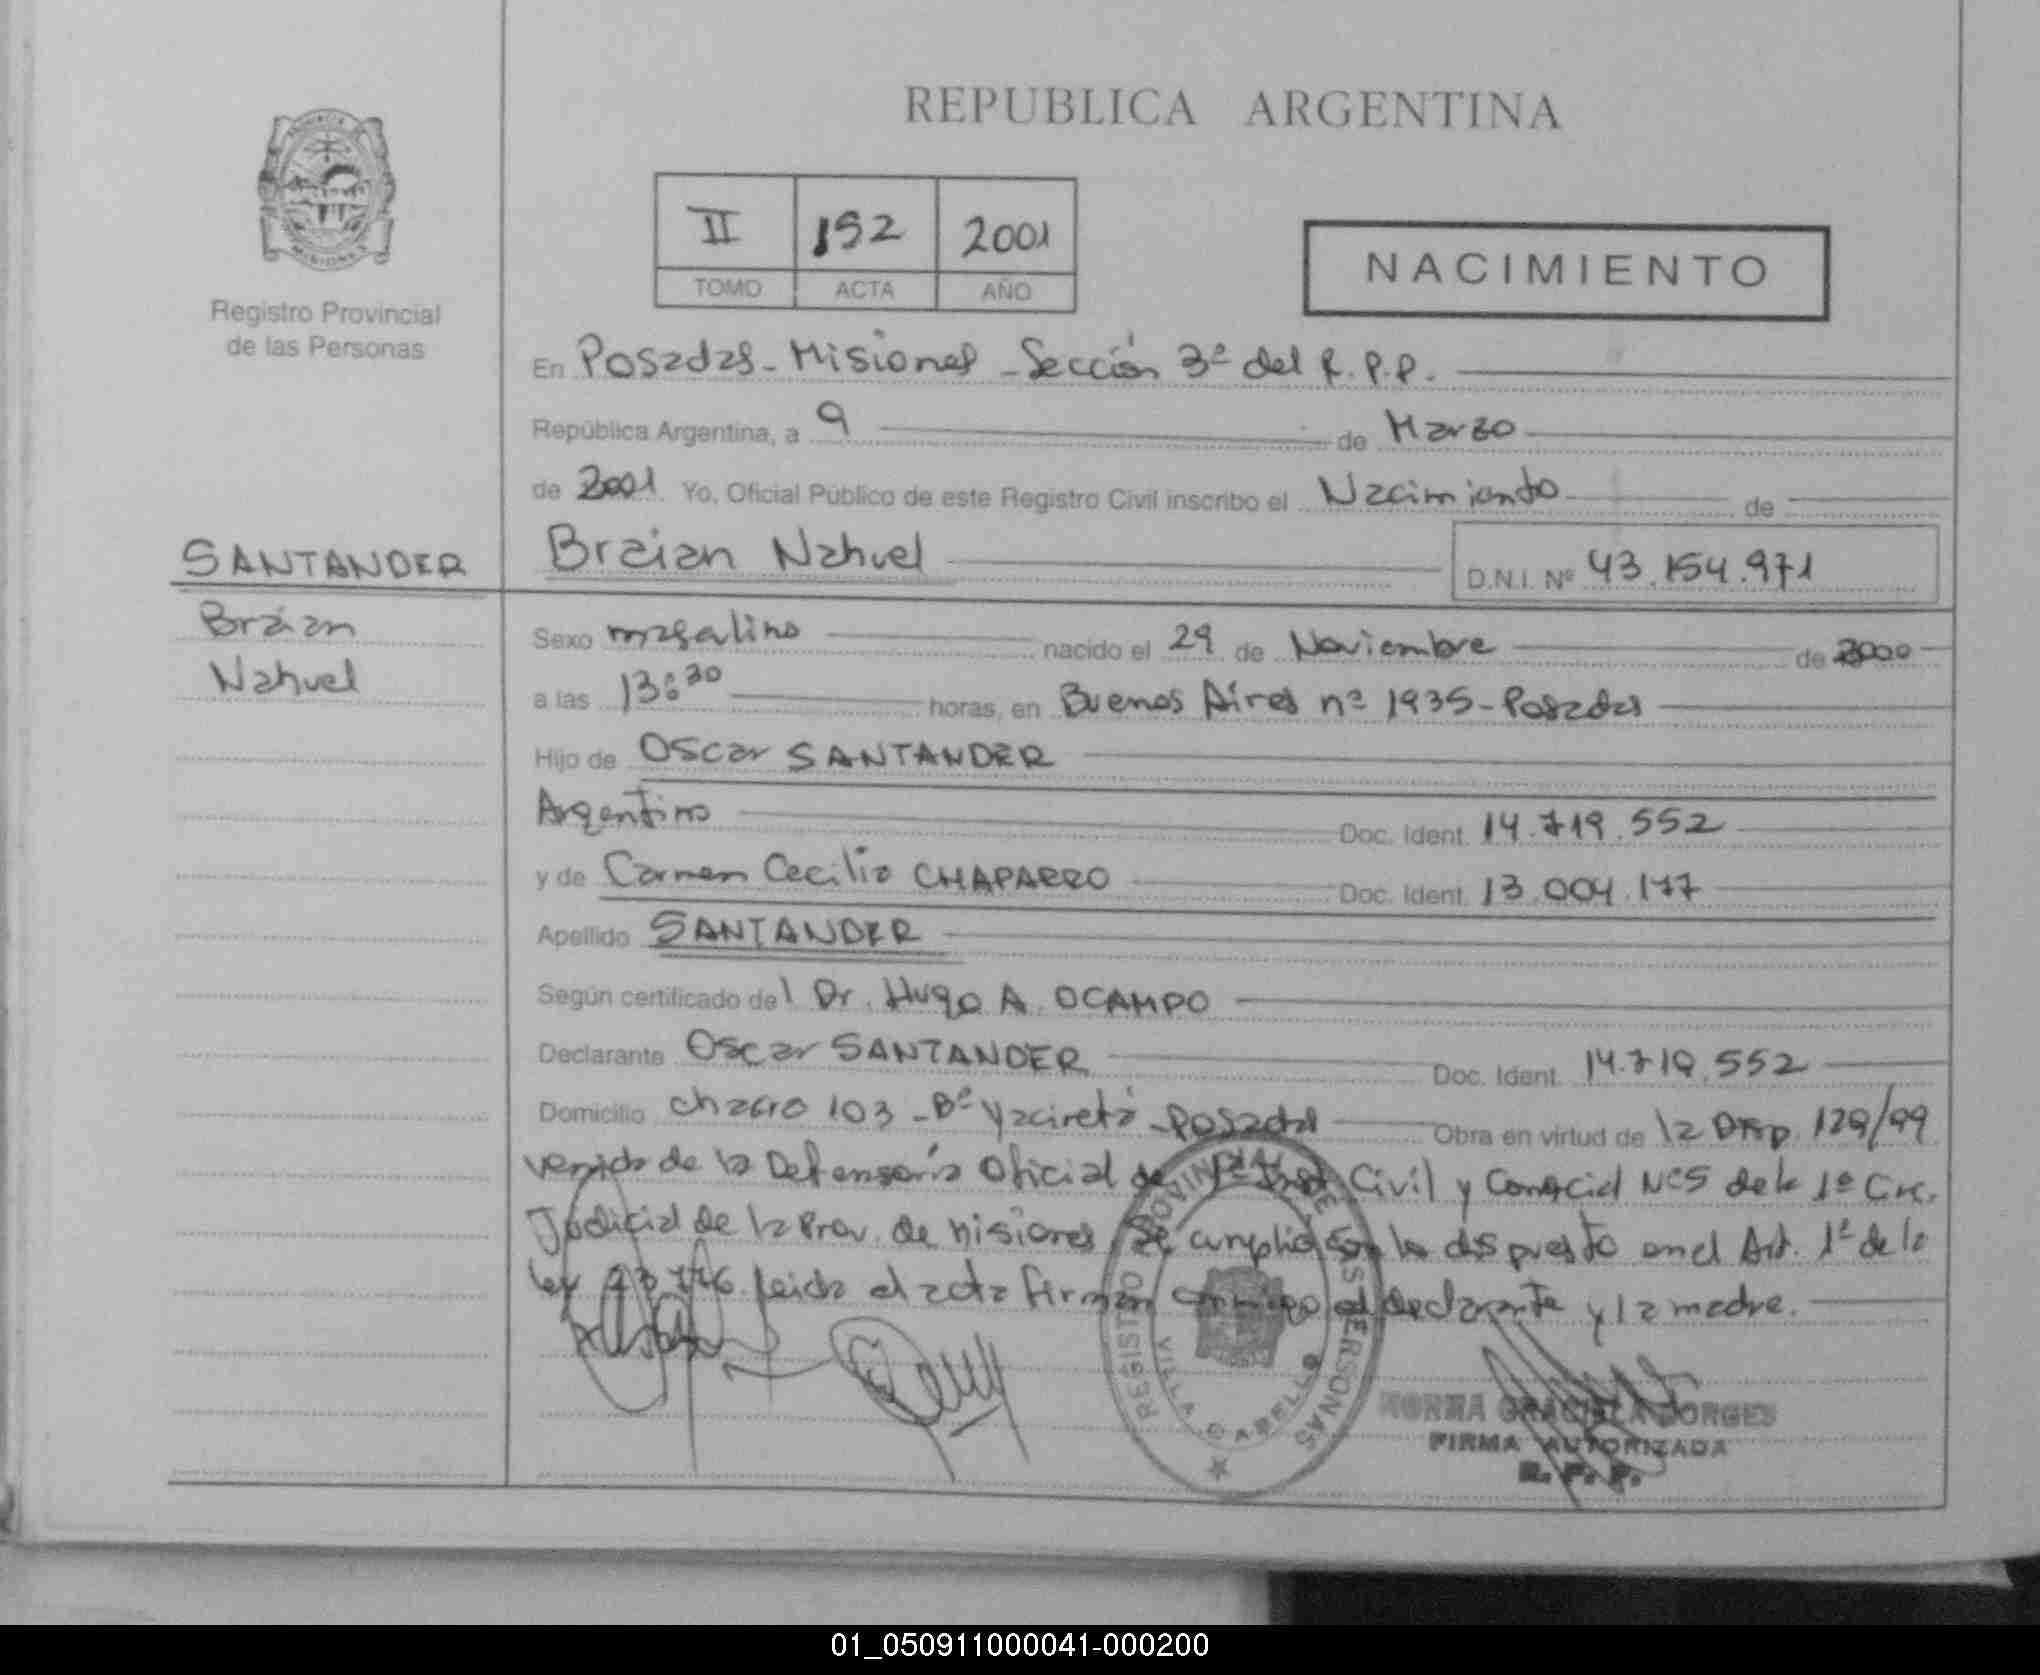 REPUBLICA ARGENTINA
PROVINCIA DE
MISIONES
Registro Provincial
de las Personas
II 152 2001
TOMO ACTA AÑO
NACIMIENTO
En Posadas - Misiones - Sección 3ª del R.P.P.
República Argentina, a 9 de Marzo
de 2001 Yo, Oficial Público de este Registro Civil inscribo el Nacimiento de
SANTANDER Braian Nahuel D.N.I. Nº 43.154.971
Braian
Nahuel
Sexo masculino nacido el 29 de Noviembre de 2000
a las 13:30 horas, en Buenos Aires nº 1935 - Posadas
Hijo de Oscar SANTANDER
Argentino Doc. Ident. 14.719.552
y de Carmen Cecilia CHAPARRO Doc. Ident. 13.004.177
Apellido SANTANDER
Según certificado del Dr. Hugo A. OCAMPO
Declarante Oscar SANTANDER Doc. Ident. 14.719.552
Domicilio Chacra 103 - Bº Yacireta - Posadas Obra en virtud de la Disp. 129/99
venida de la Defensoría Oficial de 1ª Inst Civil y Comercial Nº5 de la 1ª Circ.
Judicial de la Prov. de Misiones. Se cumplió con lo dispuesto en el Art. 1º de la
Ley 23.776. Leida el acta firman conmigo el declarante y la madre.
REGISTRO PROVINCIAL DE LAS PERSONAS
VILLA CABELLO
NORMA GRACIELA BORGES
FIRMA AUTORIZADA
R. P. P.
01_050911000041-000200